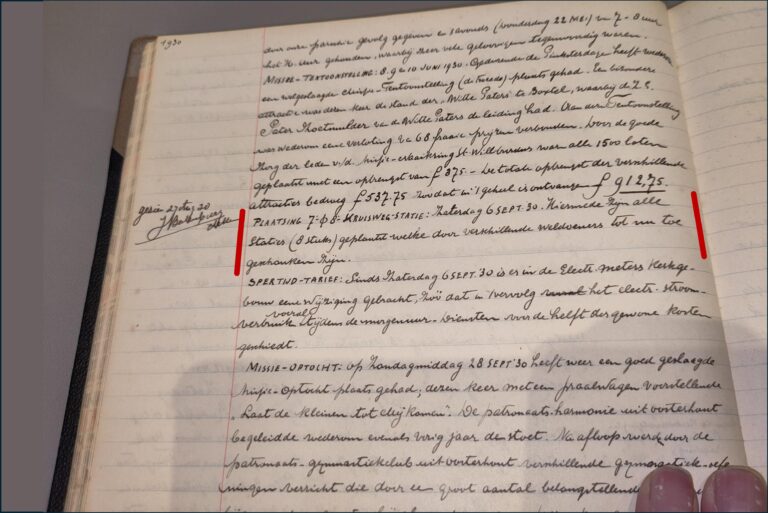 1930
door onze parochie gevolg gegeven en 's avonds (donderdag 22 MEI) van 7-8 uur
het H. Uur gehouden, waarbij zeer vele geloovigen tegenwoordig waren.
MISSIE-TENTOONSTELLING: 8, 9 en 10 JUNI 1930. Gedurende de Pinksterdagen heeft wederom
een welgeslaagde Missie-Tentoonstelling (de tweede) plaats gehad. Een bizondere
attractie was dezen keer de stand der „Witte Paters" te Boxtel, waarbij de Z.E.
Pater Thoetmulder van de Witte Paters de leiding had. Aan den Tentoonstelling
was wederom een verloting v/d 68 fraaie prijzen verbonden. Door de goede
zorg der leden v/d. Missie-naaikring St. Willibrordus waren alle 1500 loten
geplaatst met een opbrengst van f 375.- De totale opbrengst der verschillende
attracties bedroeg f 537.75 zoodat in 't geheel is ontvangen f 912,75.
gezien 27 Aug 30
PLAATSING 7e- Φ 8e-KRUISWEG-STATIE: Zaterdag 6 SEPT. 30. Hiermede zijn alle
Staties (8 stuks) geplaatst welke door verschillende weldoeners tot nu toe
geschonken zijn.
SPERTIJD-TARIEF: Sinds Zaterdag 6 SEPT. '30 is er in de Electr. meters Kerkge-
bouw eene wijziging gebracht, zóó dat in 't vervolg het electr. stroom-
verbruik vooral tijdens de morgenuur-Diensten voor de helft der gewone kosten
geschiedt.
MISSIE-OPTOCHT: op Zondagmiddag 28 SEPT '30 heeft weer een goed geslaagde
Missie-Optocht plaats gehad, dezen keer met een praalwagen voorstellende
„Laat de kleinen tot Mij komen". De patronaats-harmonie uit Oosterhout
begeleidde wederom evenals vorig jaar de stoet. Na afloop werd door de
patronaats-gymnastiekclub uit Oosterhout verschillende gymnastiek-oefe
ningen verricht die door een groot aantal belangstellende